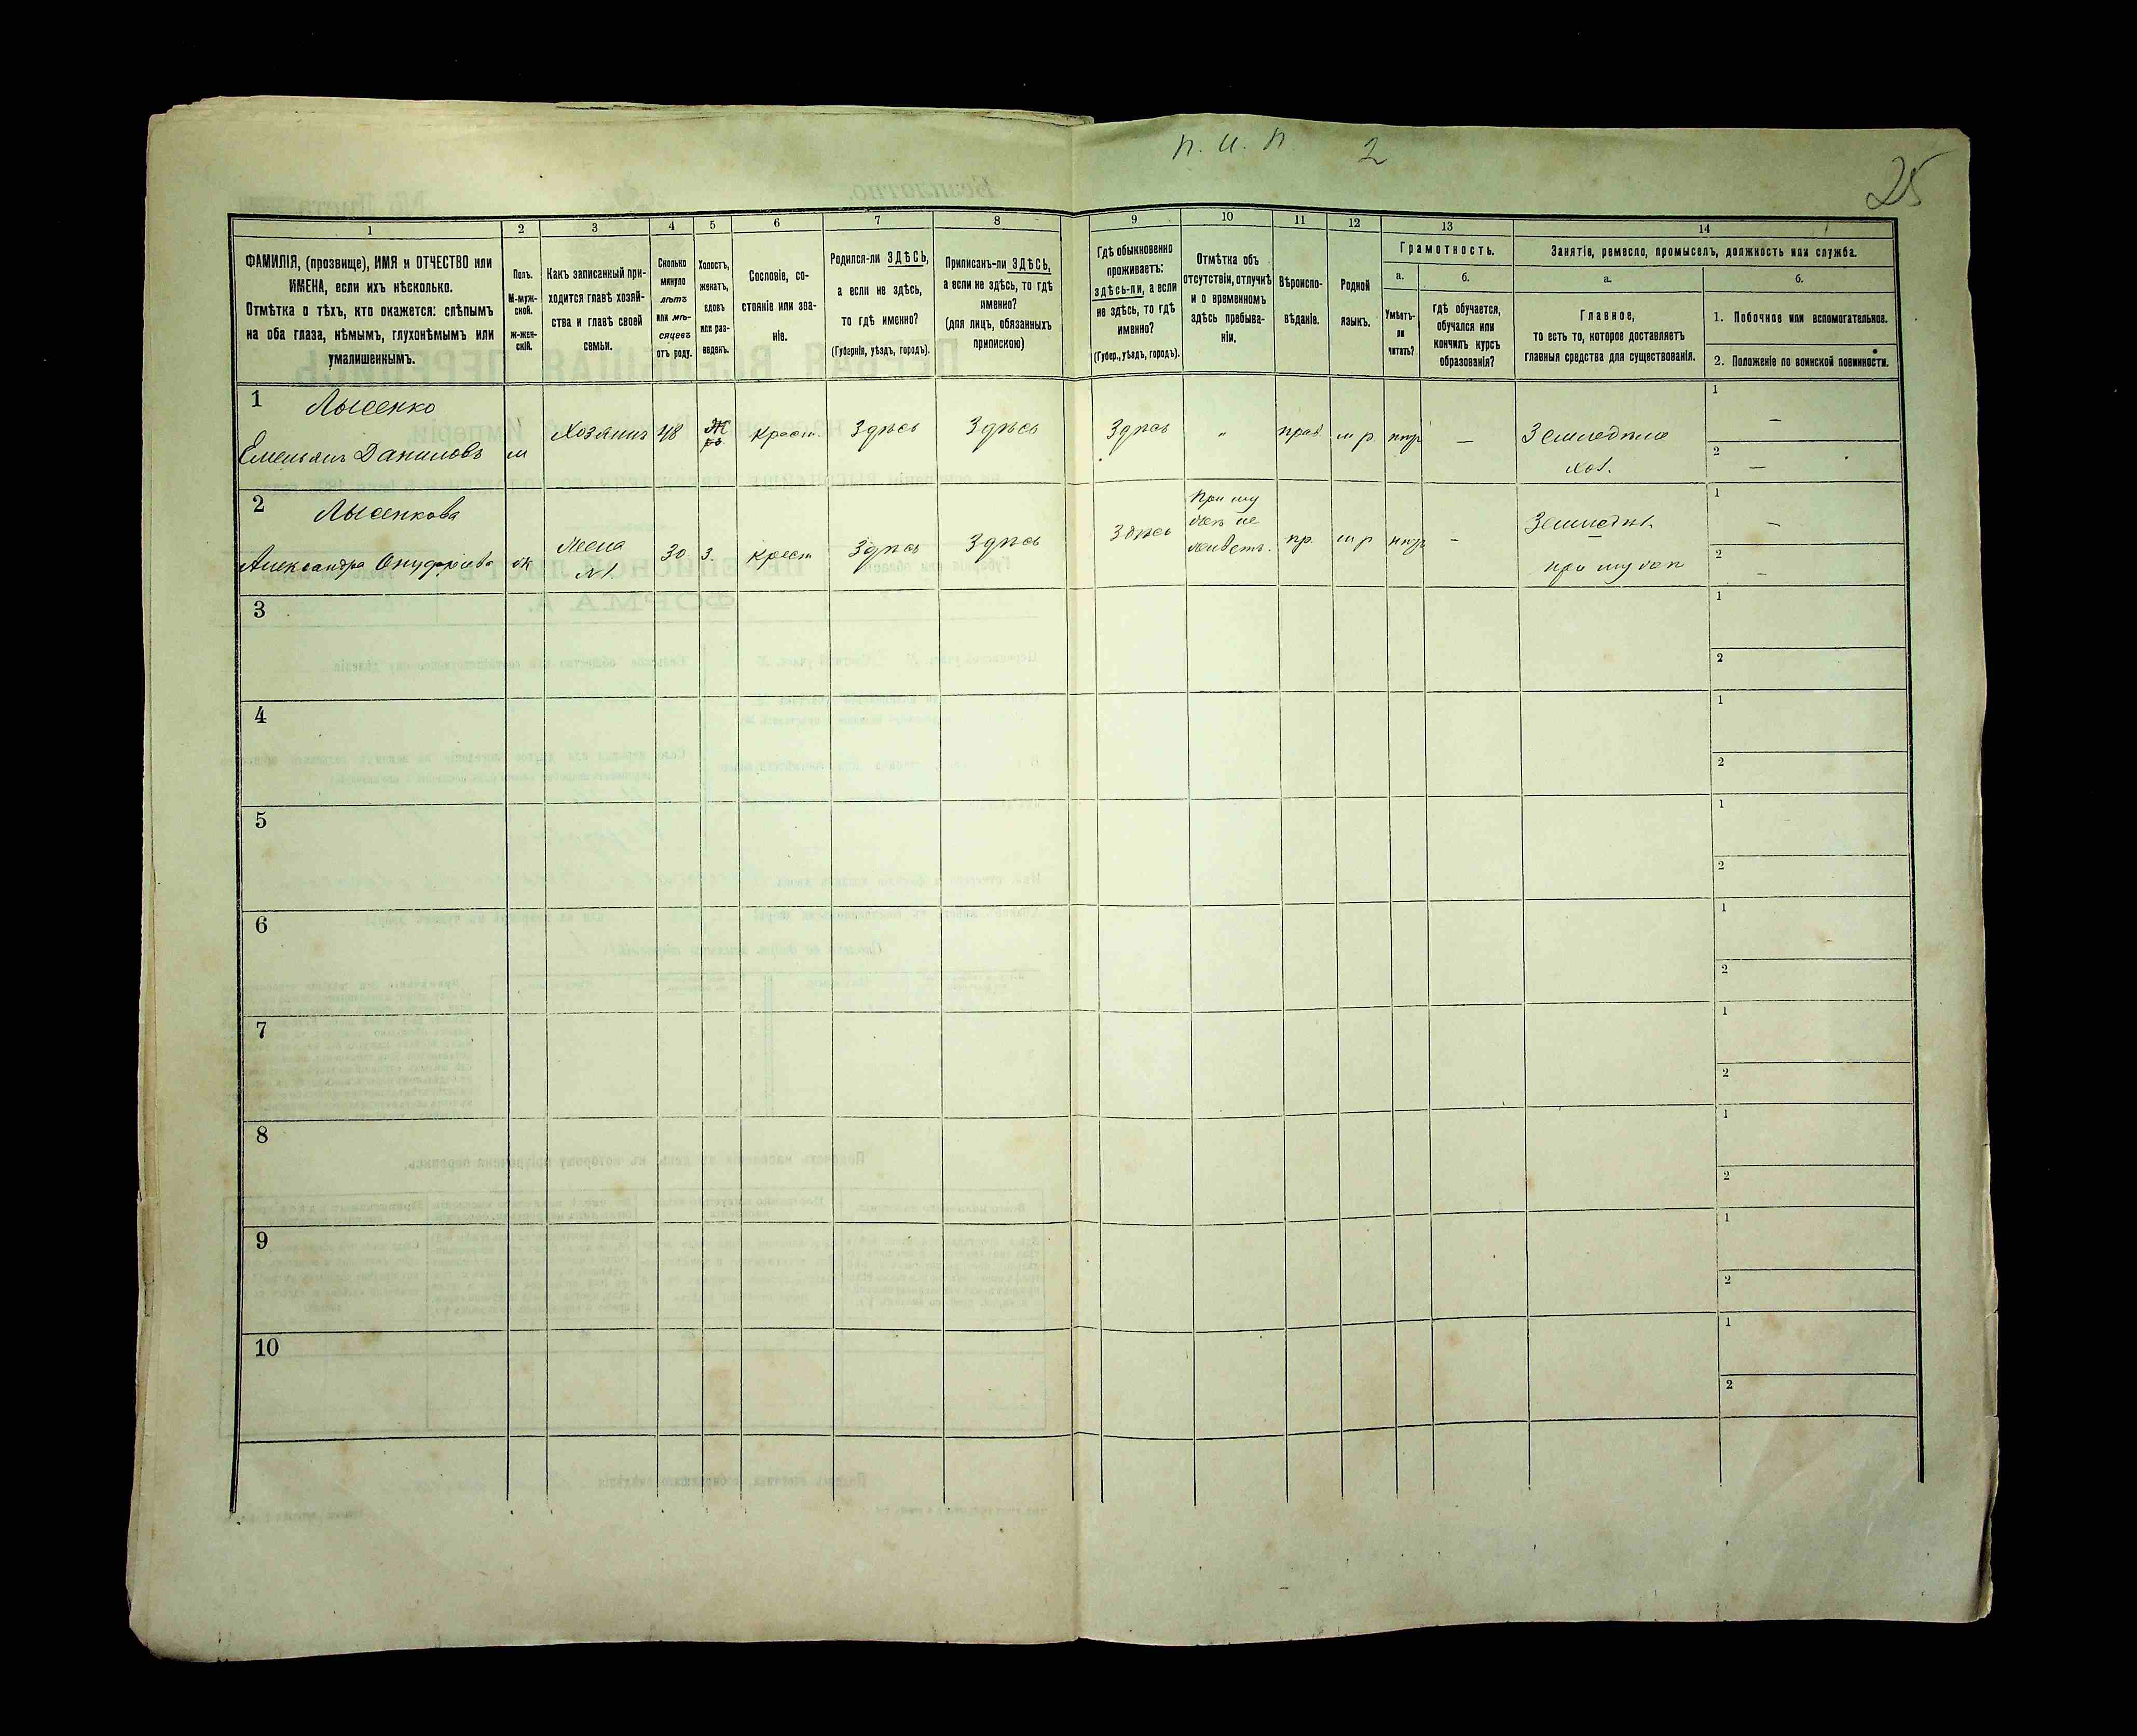 п. и. п. 2
25
1 2 3 4 5 6 7 8 9 10 11 12 13 14
ФАМИЛІЯ, (прозвище), ИМЯ и ОТЧЕСТВО или
ИМЕНА, если ихъ нѣсколько.
Отмѣтка о тѣхъ, кто окажется: слѣпымъ
на оба глаза, нѣмымъ, глухонѣмымъ или
умалишеннымъ.
Полъ.
М-муж-
ской.
Ж-жен-
скій.
Какъ записанный при-
ходится главѣ хозяй-
ства и главѣ своей
семьи.
Сколько
минуло
лѣтъ
или мѣ-
сяцевъ
отъ роду.
Холостъ,
женатъ,
вдовъ
или раз-
веденъ.
Сословіе, со-
стояніе или зва-
ніе.
Родился-ли ЗДѢСЬ,
а если не здѣсь,
то гдѣ именно?
(Губернія, уѣздъ, городъ).
Приписанъ-ли ЗДѢСЬ,
а если не здѣсь, то гдѣ
именно?
(для лицъ, обязанныхъ
припискою)
Гдѣ обыкновенно
проживаетъ:
здѣсь-ли, а если
не здѣсь, то гдѣ
именно?
(Губер., уѣздъ, городъ).
Отмѣтка объ
отсутствіи, отлучкѣ
и о временномъ
здѣсь пребыва-
ніи.
Вѣроиспо-
вѣданіе.
Родной
языкъ.
Грамотность.
а.
Умѣетъ-
ли
читать?
б.
Гдѣ обучается,
обучался или
кончилъ курсъ
образованія?
Занятіе, ремесло, промыселъ, должность или служба.
а.
Главное,
то есть то, которое доставляетъ
главныя средства для существованія.
б.
1. Побочное или вспомогательное.
2. Положеніе по воинской повинности.
1 Лысенко
Емельянъ Даниловъ
м
Хозяинъ
48
крест.
Здѣсь
Здѣсь
Здѣсь
"
прав
м р
нгр
—
Земледѣліе
хоз.
1 —
2 —
2 Лысенкова
Александра Онуфріева
ж
Жена
№1.
30
з.
крест
Здѣсь
Здѣсь
Здѣсь
При му
жѣ не
живетъ.
пр.
м р
нгр
—
Земледѣл.
при мужѣ
1 —
2 —
3
1
2
4
1
2
5
1
2
6
1
2
7
1
2
8
1
2
9
1
2
10
1
2